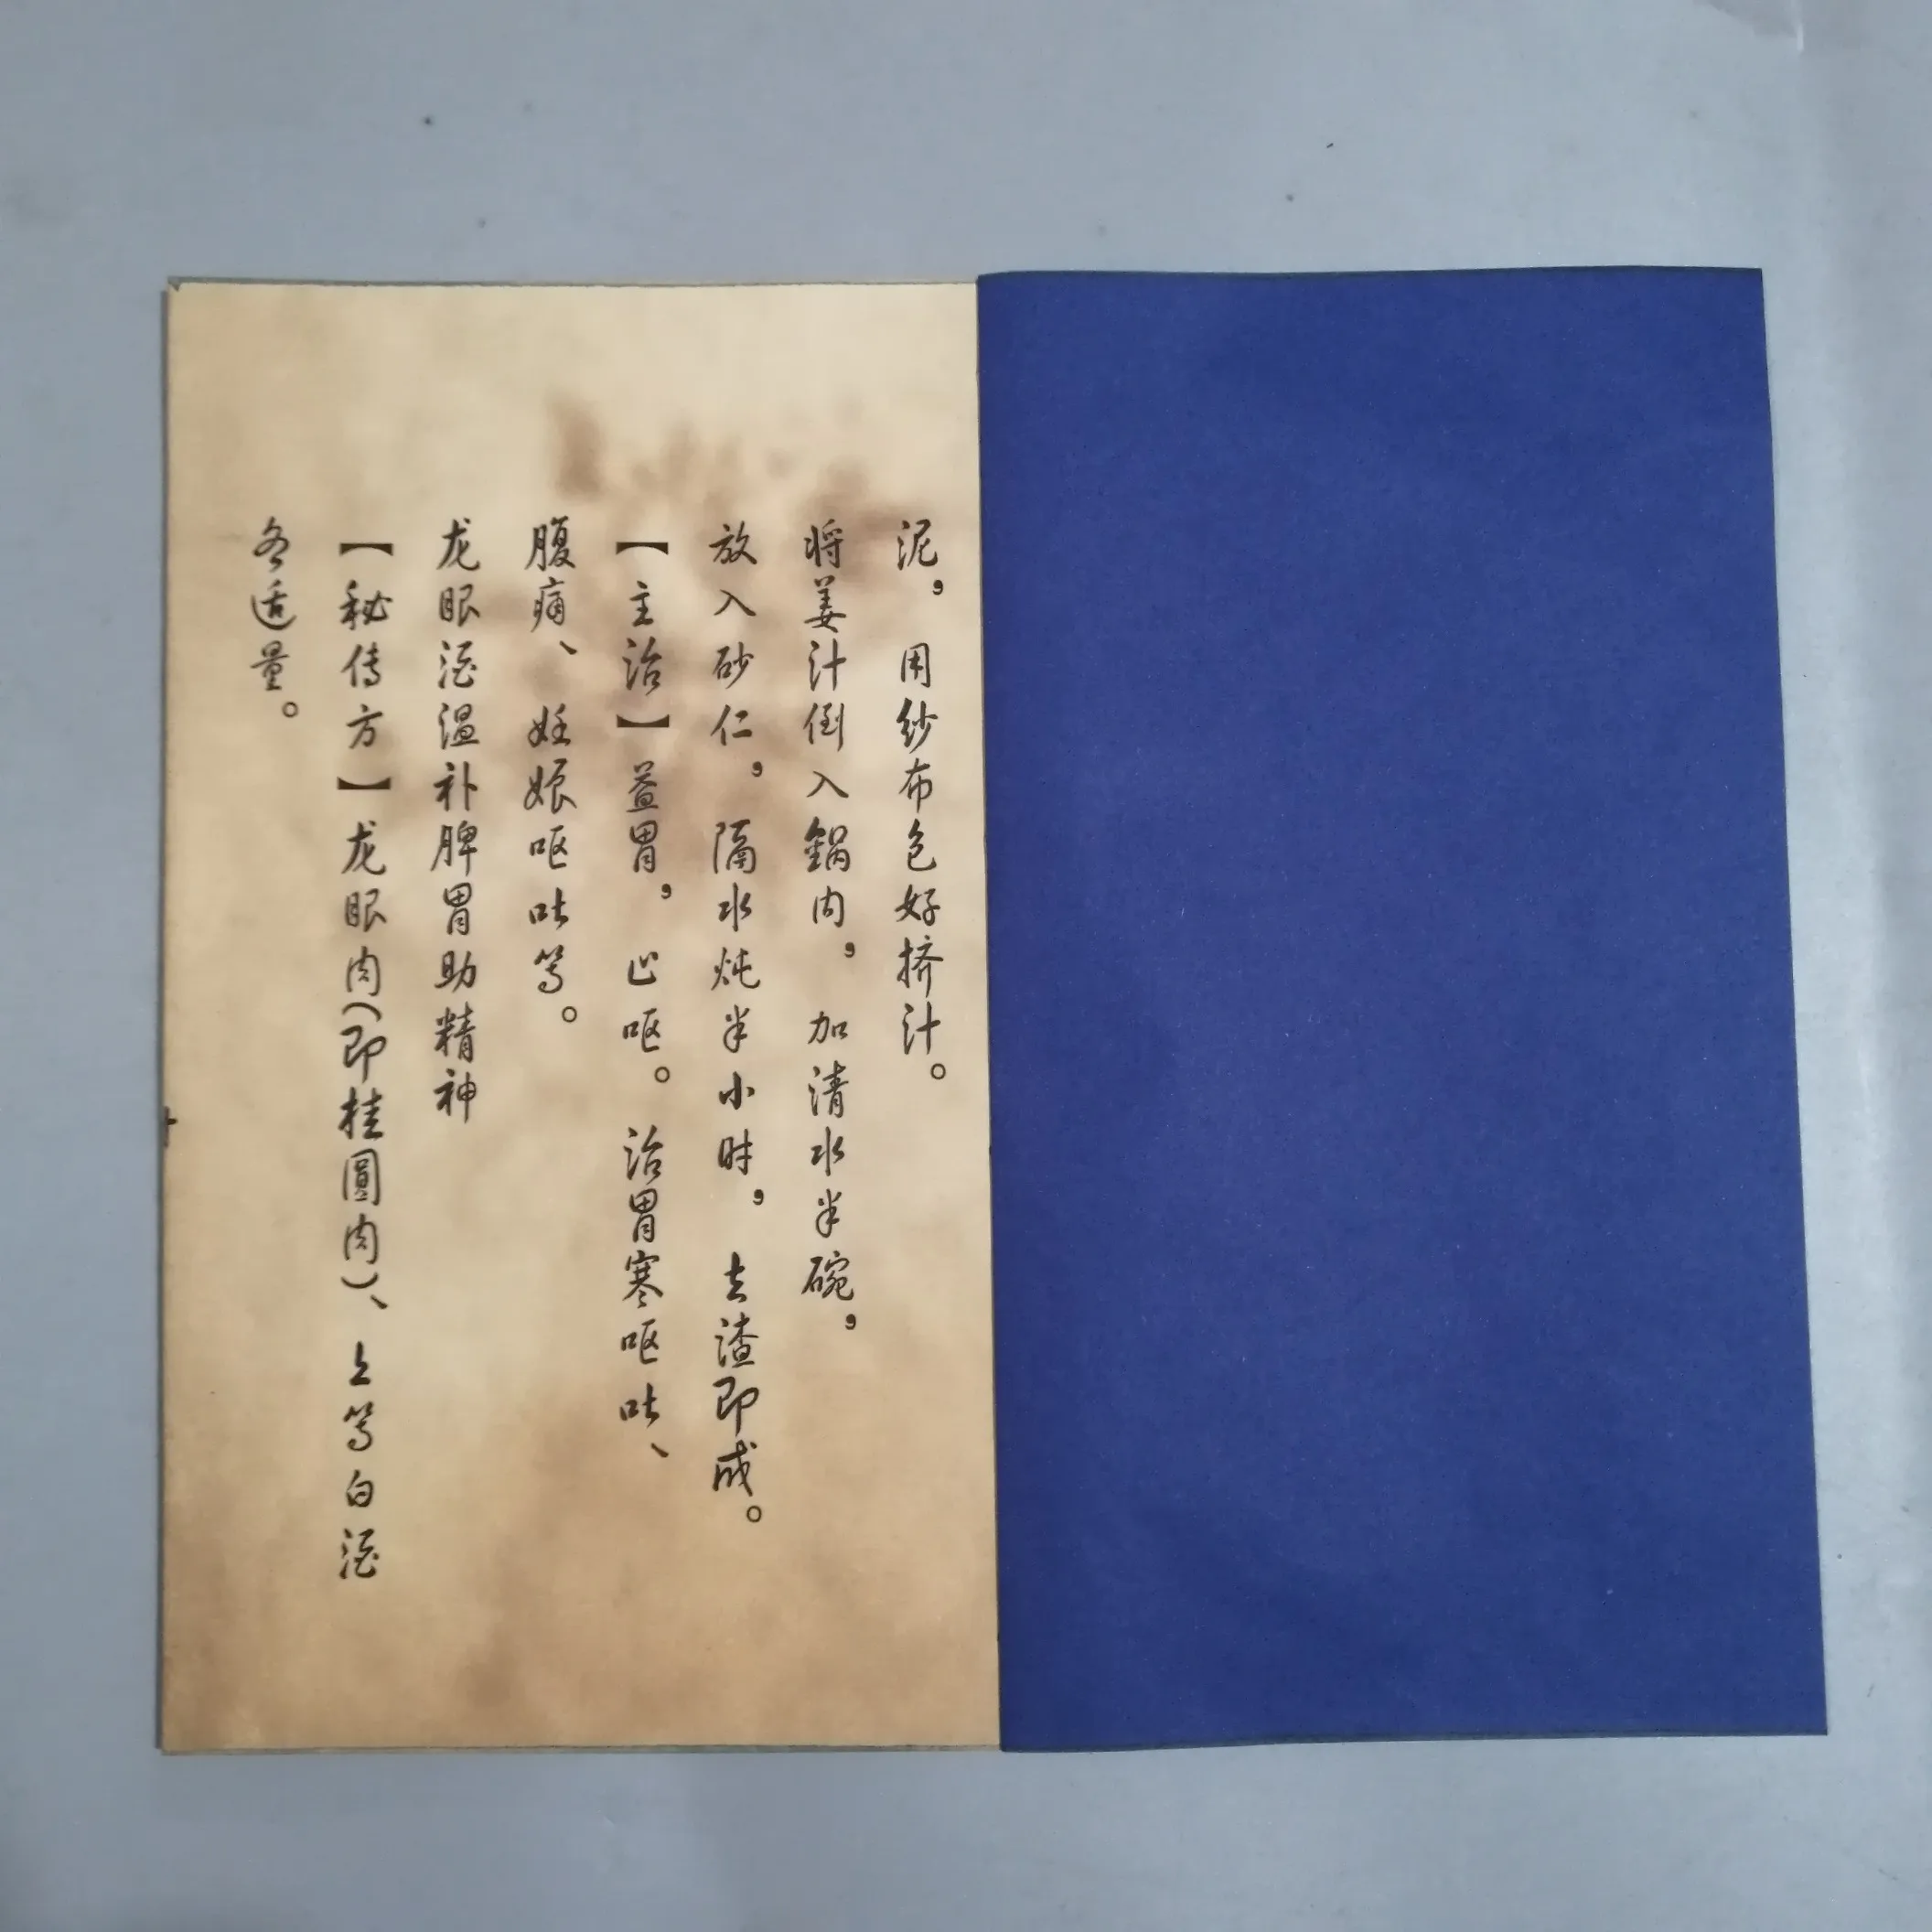 泥，用纱布包好挤汁。
将姜汁倒入锅内，加清水半碗，
放入砂仁，隔水炖半小时，去渣即成。
【主治】益胃，止呕。治胃寒呕吐、
腹痛、妊娠呕吐等。
龙眼酒温补脾胃助精神
【秘传方】龙眼肉(即桂圆肉)、上等白酒
各适量。